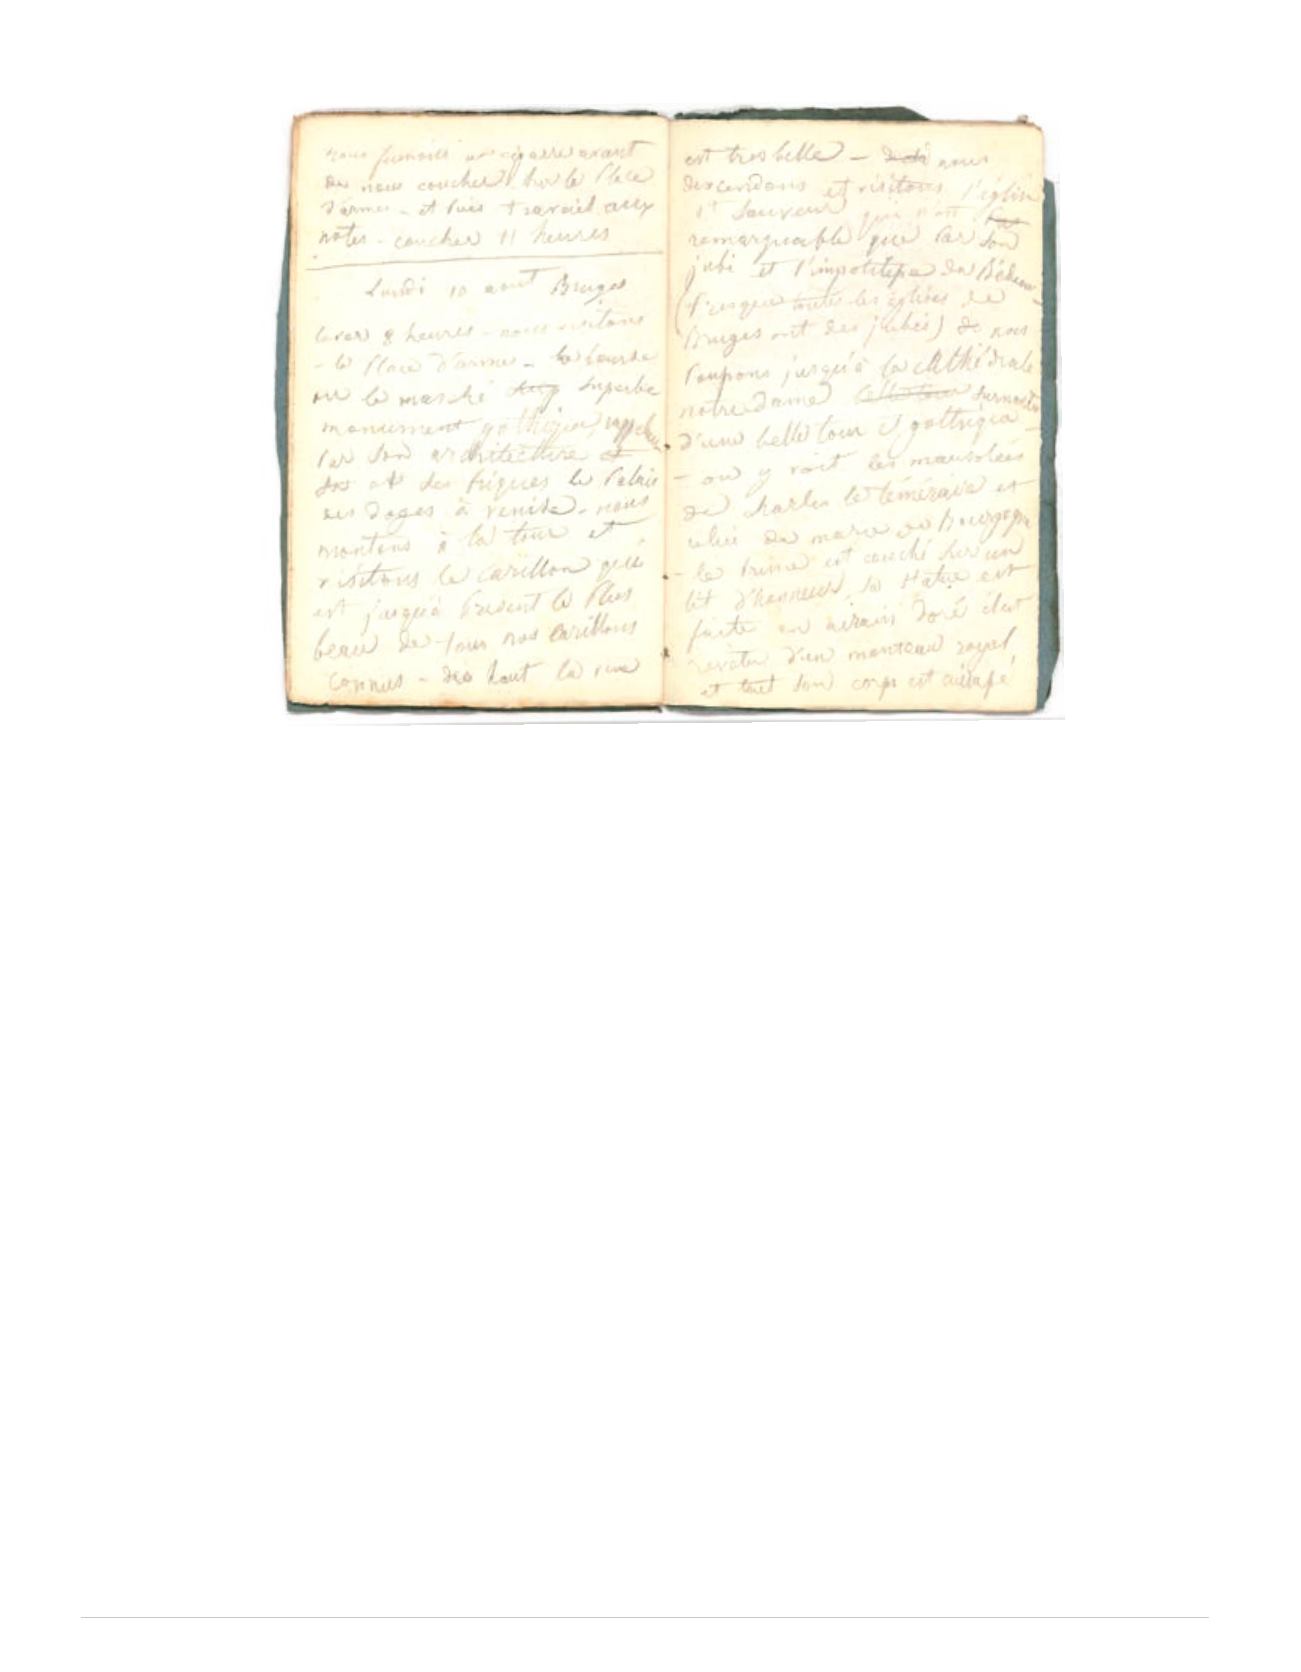 nous fumons un cigarre avant
de nous coucher sur la Place
d'armes - et puis travail aux
notes - coucher 11 heures
Lundi 10 aout Bruges
lever 8 heures - nous visitons
- la Place d'armes - la
ou le marché superbe
monument gothique
Par son architecture et
et ses le Palais
des Doges à venise - nous
montons à la tour et
visitons le carillon qui
est jusqu'à Présent le Plus
beau de tous nos carillons
connus - de haut la vue
est tres belle - de là nous
descendons et visitons l'église
St Sauveur qui n'est
remarquable que Par son
jubé et
(Presque toutes les églises de
Bruges ont des jubés) de nous
Poussons jusqu'à la cathédrale
notre dame surmontée
d'une belle tour gothique -
- on y voit les mausolées
de charles le téméraire et
celui de marie de Bourgogne
- le Prince est couché sur un
lit d'honneur, sa statue est
faite en airain doré il est
revetu d'un manteau royal
et tout son corps est